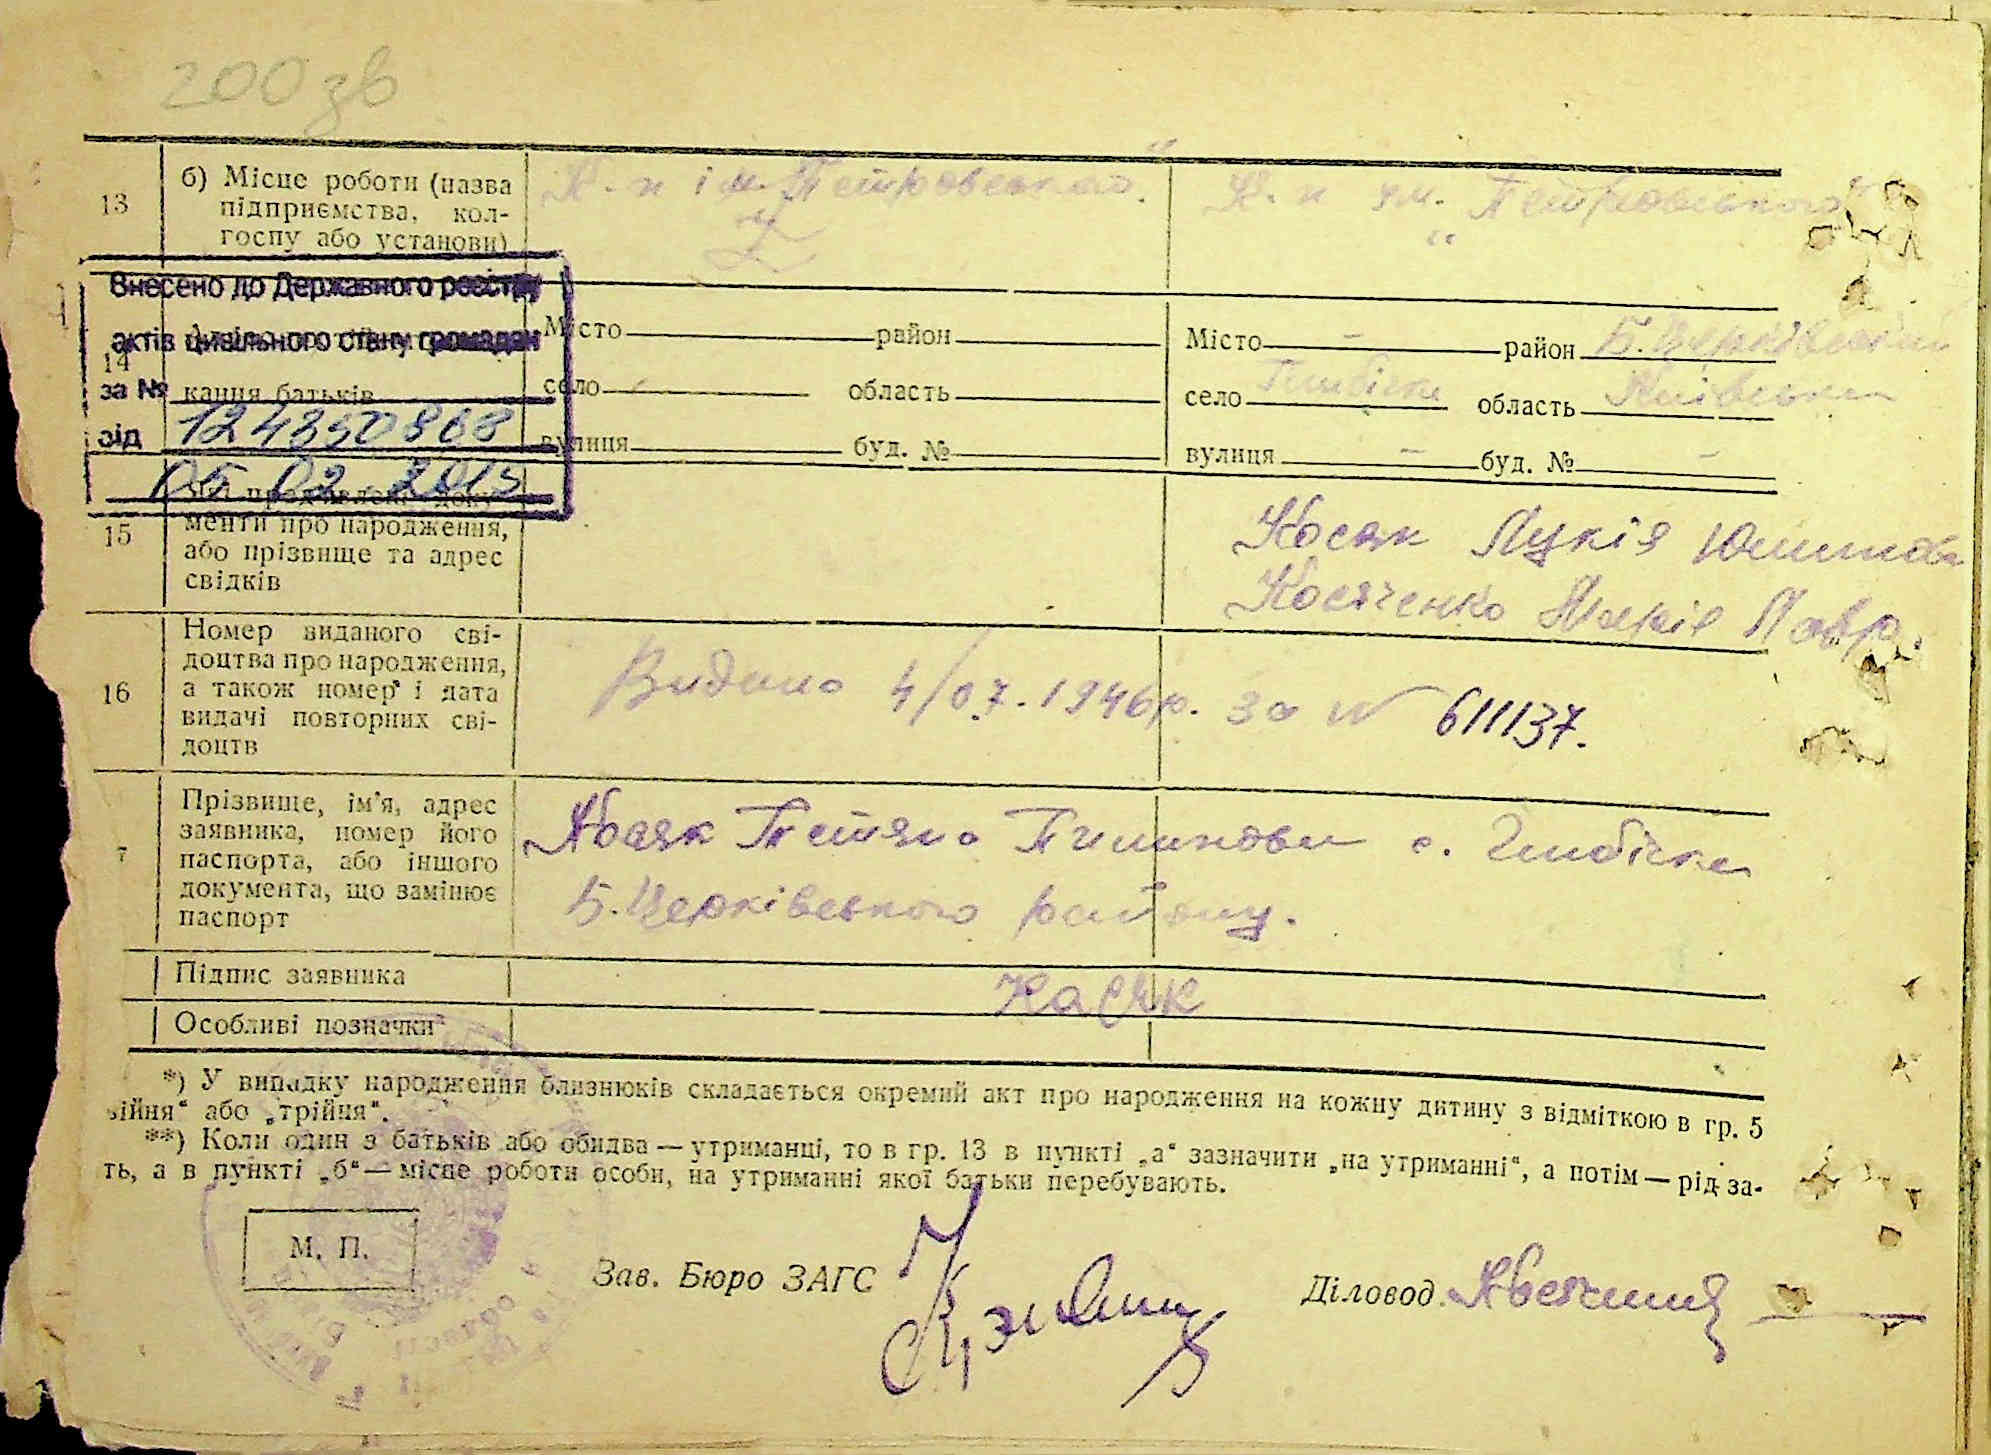 200 зв
13
б) Місце роботи (назва
підприємства, кол-
госпу або установи)
К-п ім. Петровського
К-п ім. Петровського
Внесено до Державного реєстру
актів цивільного стану громадян
за №
124350868
від
06 02 2013
14
кання батьків
Місто район
село область
вулиця буд. №
Місто – район Б. Церківський
село область Київська
вулиця – буд. № –
15
менти про народження,
або прізвище та адрес
свідків
Косяк Лукія
Косяченко Марія Лавр.
16
Номер виданого сві-
доцтва про народження,
а також номер і дата
видачі повторних сві-
доцтв
Видано 4/07.1946р. за № 611137.
7
Прізвище, ім'я, адрес
заявника, номер його
паспорта, або іншого
документа, що замінює
паспорт
Косяк Тетяна Пилиповна с.
Б. Церківського району.
Підпис заявника
Касяк
Особливі позначки
*) У випадку народження близнюків складається окремий акт про народження на кожну дитину з відміткою в гр. 5
війня“ або „трійня“.
**) Коли один з батьків або обидва — утриманці, то в гр. 13 в пункті „а“ зазначити „на утриманні“, а потім — рід за-
ть, а в пункті „б“ — місце роботи особи, на утриманні якої батьки перебувають.
М. П.
Зав. Бюро ЗАГС
Діловод